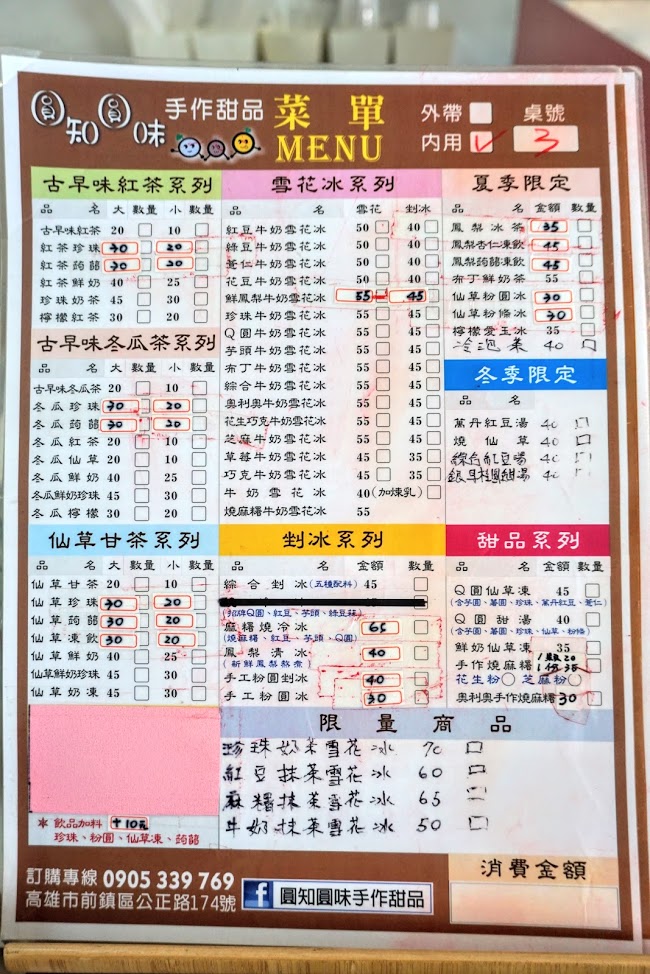 圓知圓味 手作甜品 菜單 MENU
外帶 □ 桌號
內用 V 3
古早味紅茶系列
品名 大 數量 小 數量
古早味紅茶 20 □ 10 □
紅茶珍珠 30 □ 20 □
紅茶蒟蒻 30 □ 20 □
紅茶鮮奶 40 □ 25 □
珍珠奶茶 45 □ 30 □
檸檬紅茶 30 □ 20 □
古早味冬瓜茶系列
品名 大 數量 小 數量
古早味冬瓜茶 20 □ 10 □
冬瓜珍珠 30 □ 20 □
冬瓜蒟蒻 30 □ 20 □
冬瓜紅茶 20 □ 10 □
冬瓜仙草 20 □ 10 □
冬瓜鮮奶 40 □ 25 □
冬瓜鮮奶珍珠 45 □ 30 □
冬瓜檸檬 30 □ 20 □
仙草甘茶系列
品名 大 數量 小 數量
仙草甘茶 20 □ 10 □
仙草珍珠 30 □ 20 □
仙草蒟蒻 30 □ 20 □
仙草凍飲 30 □ 20 □
仙草鮮奶 40 □ 25 □
仙草鮮奶珍珠 45 □ 30 □
仙草奶凍 45 □ 30 □
＊飲品加料 +10元
珍珠、粉圓、仙草凍、蒟蒻
雪花冰系列
品名 雪花 剉冰
紅豆牛奶雪花冰 50 □ 40 □
綠豆牛奶雪花冰 50 □ 40 □
薏仁牛奶雪花冰 50 □ 40 □
花豆牛奶雪花冰 50 □ 40 □
鮮鳳梨牛奶雪花冰 55 45 □
珍珠牛奶雪花冰 55 □ 45 □
Q圓牛奶雪花冰 55 □ 45 □
芋頭牛奶雪花冰 55 □ 45 □
布丁牛奶雪花冰 55 □ 45 □
綜合牛奶雪花冰 55 □ 45 □
奧利奧牛奶雪花冰 55 □ 45 □
花生巧克牛奶雪花冰 55 □ 45 □
芝麻牛奶雪花冰 55 □ 45 □
草莓牛奶雪花冰 45 □ 35 □
巧克牛奶雪花冰 45 □ 35 □
牛奶雪花冰 40(加煉乳) □
燒麻糬牛奶雪花冰 55
剉冰系列
品名 金額 數量
綜合剉冰(五種配料) 45 □
(招牌Q圓、紅豆、芋頭、綠豆蒜)
麻糬燒冷冰 65 □
(燒麻糬、紅豆、芋頭、Q圓)
鳳梨清冰 40 □
(新鮮鳳梨熬煮)
手工粉圓剉冰 40 □
手工粉圓冰 30 □
夏季限定
品名 金額 數量
鳳梨冰茶 35 □
鳳梨杏仁凍飲 45 □
鳳梨蒟蒻凍飲 45 □
布丁鮮奶茶 55 □
仙草粉圓冰 30 □
仙草粉條冰 30 □
檸檬愛玉冰 35 □
冷泡茶 40 □
冬季限定
萬丹紅豆湯 40 □
燒仙草 40 □
綜合紅豆湯 40 □
銀耳桂圓甜湯 40 □
甜品系列
品名 金額 數量
Q圓仙草凍 45 □
(含芋圓、薯圓、珍珠、萬丹紅豆、薏仁)
Q圓甜湯 40 □
(含芋圓、薯圓、珍珠、仙草、粉條)
鮮奶仙草凍 35 □
手作燒麻糬 1份35 □
花生粉○ 芝麻粉○
奧利奧手作燒麻糬 30 □
限量商品
珍珠奶茶雪花冰 70 □
紅豆抹茶雪花冰 60 □
麻糬抹茶雪花冰 65 □
牛奶抹茶雪花冰 50 □
訂購專線 0905 339 769
高雄市前鎮區公正路174號
f 圓知圓味手作甜品
消費金額